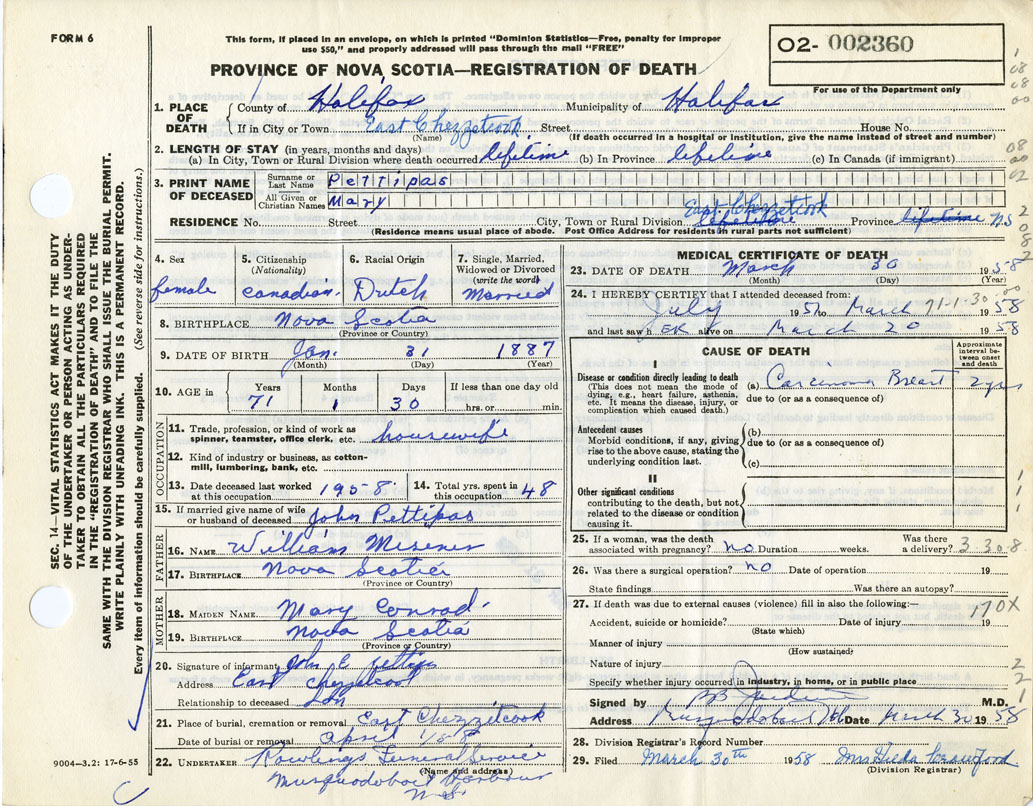 FORM 6
This form, if placed in an envelope, on which is printed "Dominion Statistics—Free, penalty for improper
use $50," and properly addressed will pass through the mail "FREE"
02- 002360
For use of the Department only
PROVINCE OF NOVA SCOTIA—REGISTRATION OF DEATH
SEC. 14—VITAL STATISTICS ACT MAKES IT THE DUTY
OF THE UNDERTAKER OR PERSON ACTING AS UNDER-
TAKER TO OBTAIN ALL THE PARTICULARS REQUIRED
IN THE "REGISTRATION OF DEATH" AND TO FILE THE
SAME WITH THE DIVISION REGISTRAR WHO SHALL ISSUE THE BURIAL PERMIT.
WRITE PLAINLY WITH UNFADING INK. THIS IS A PERMANENT RECORD.
Every item of information should be carefully supplied. (See reverse side for instructions.)
1. PLACE OF DEATH County of Halifax Municipality of Halifax
If in City or Town East Chezzetcook, Street House No.
(Name) (If death occurred in a hospital or institution, give the name instead of street and number)
2. LENGTH OF STAY (in years, months and days)
(a) In City, Town or Rural Division where death occurred lifetime (b) In Province lifetime (c) In Canada (if immigrant)
3. PRINT NAME OF DECEASED
Surname or Last Name Pettipas
All Given or Christian Names Mary
RESIDENCE No. Street City, Town or Rural Division East Chezzetcook lifetime Province lifetime N.S
(Residence means usual place of abode. Post Office Address for residents in rural parts not sufficient)
4. Sex
female
5. Citizenship (Nationality)
Canadian
6. Racial Origin
Dutch
7. Single, Married, Widowed or Divorced (write the word)
Married
8. BIRTHPLACE Nova Scotia
(Province or Country)
9. DATE OF BIRTH Jan. 31 1887
(Month) (Day) (Year)
10. AGE in Years Months Days If less than one day old
71 1 30 hrs. or min.
OCCUPATION
11. Trade, profession, or kind of work as
spinner, teamster, office clerk, etc. housewife
12. Kind of industry or business, as cotton-
mill, lumbering, bank, etc.
13. Date deceased last worked
at this occupation 1958
14. Total yrs. spent in
this occupation 48
15. If married give name of wife
or husband of deceased John Pettipas
FATHER
16. NAME William Misener
17. BIRTHPLACE Nova Scotia
(Province or Country)
MOTHER
18. MAIDEN NAME Mary Conrad.
19. BIRTHPLACE Nova Scotia
(Province or Country)
20. Signature of informant John E Pettipas
Address East Chezzetcook
Relationship to deceased Son
21. Place of burial, cremation or removal East Chezzetcook
Date of burial or removal April 1/58
22. UNDERTAKER Rowlings Funeral Service
(Name and address)
Musquodoboit Harbour
N.S.
9004—3.2: 17-6-55
MEDICAL CERTIFICATE OF DEATH
23. DATE OF DEATH March 30 1958
(Month) (Day) (Year)
24. I HEREBY CERTIFY that I attended deceased from:
July 1957 to March 1958
71-1-30
and last saw h ER alive on March 20 1958
CAUSE OF DEATH
Approximate interval between onset and death
I
Disease or condition directly leading to death
(This does not mean the mode of
dying, e.g., heart failure, asthenia,
etc. It means the disease, injury, or
complication which caused death.)
(a) Carcinoma Breast 2 yrs
due to (or as a consequence of)
Antecedent causes
Morbid conditions, if any, giving
rise to the above cause, stating the
underlying condition last.
(b)
due to (or as a consequence of)
(c)
II
Other significant conditions
contributing to the death, but not
related to the disease or condition
causing it.
25. If a woman, was the death
associated with pregnancy? no Duration weeks. Was there
a delivery?
3 30 8
26. Was there a surgical operation? no Date of operation 19
State findings Was there an autopsy?
27. If death was due to external causes (violence) fill in also the following:—
170X
Accident, suicide or homicide? Date of injury 19
(State which)
Manner of injury
(How sustained)
Nature of injury
Specify whether injury occurred in industry, in home, or in public place
Signed by M.D.
Address Date March 30 1958
28. Division Registrar's Record Number
29. Filed March 30th 1958 Mrs Hilda Crawford
(Division Registrar)